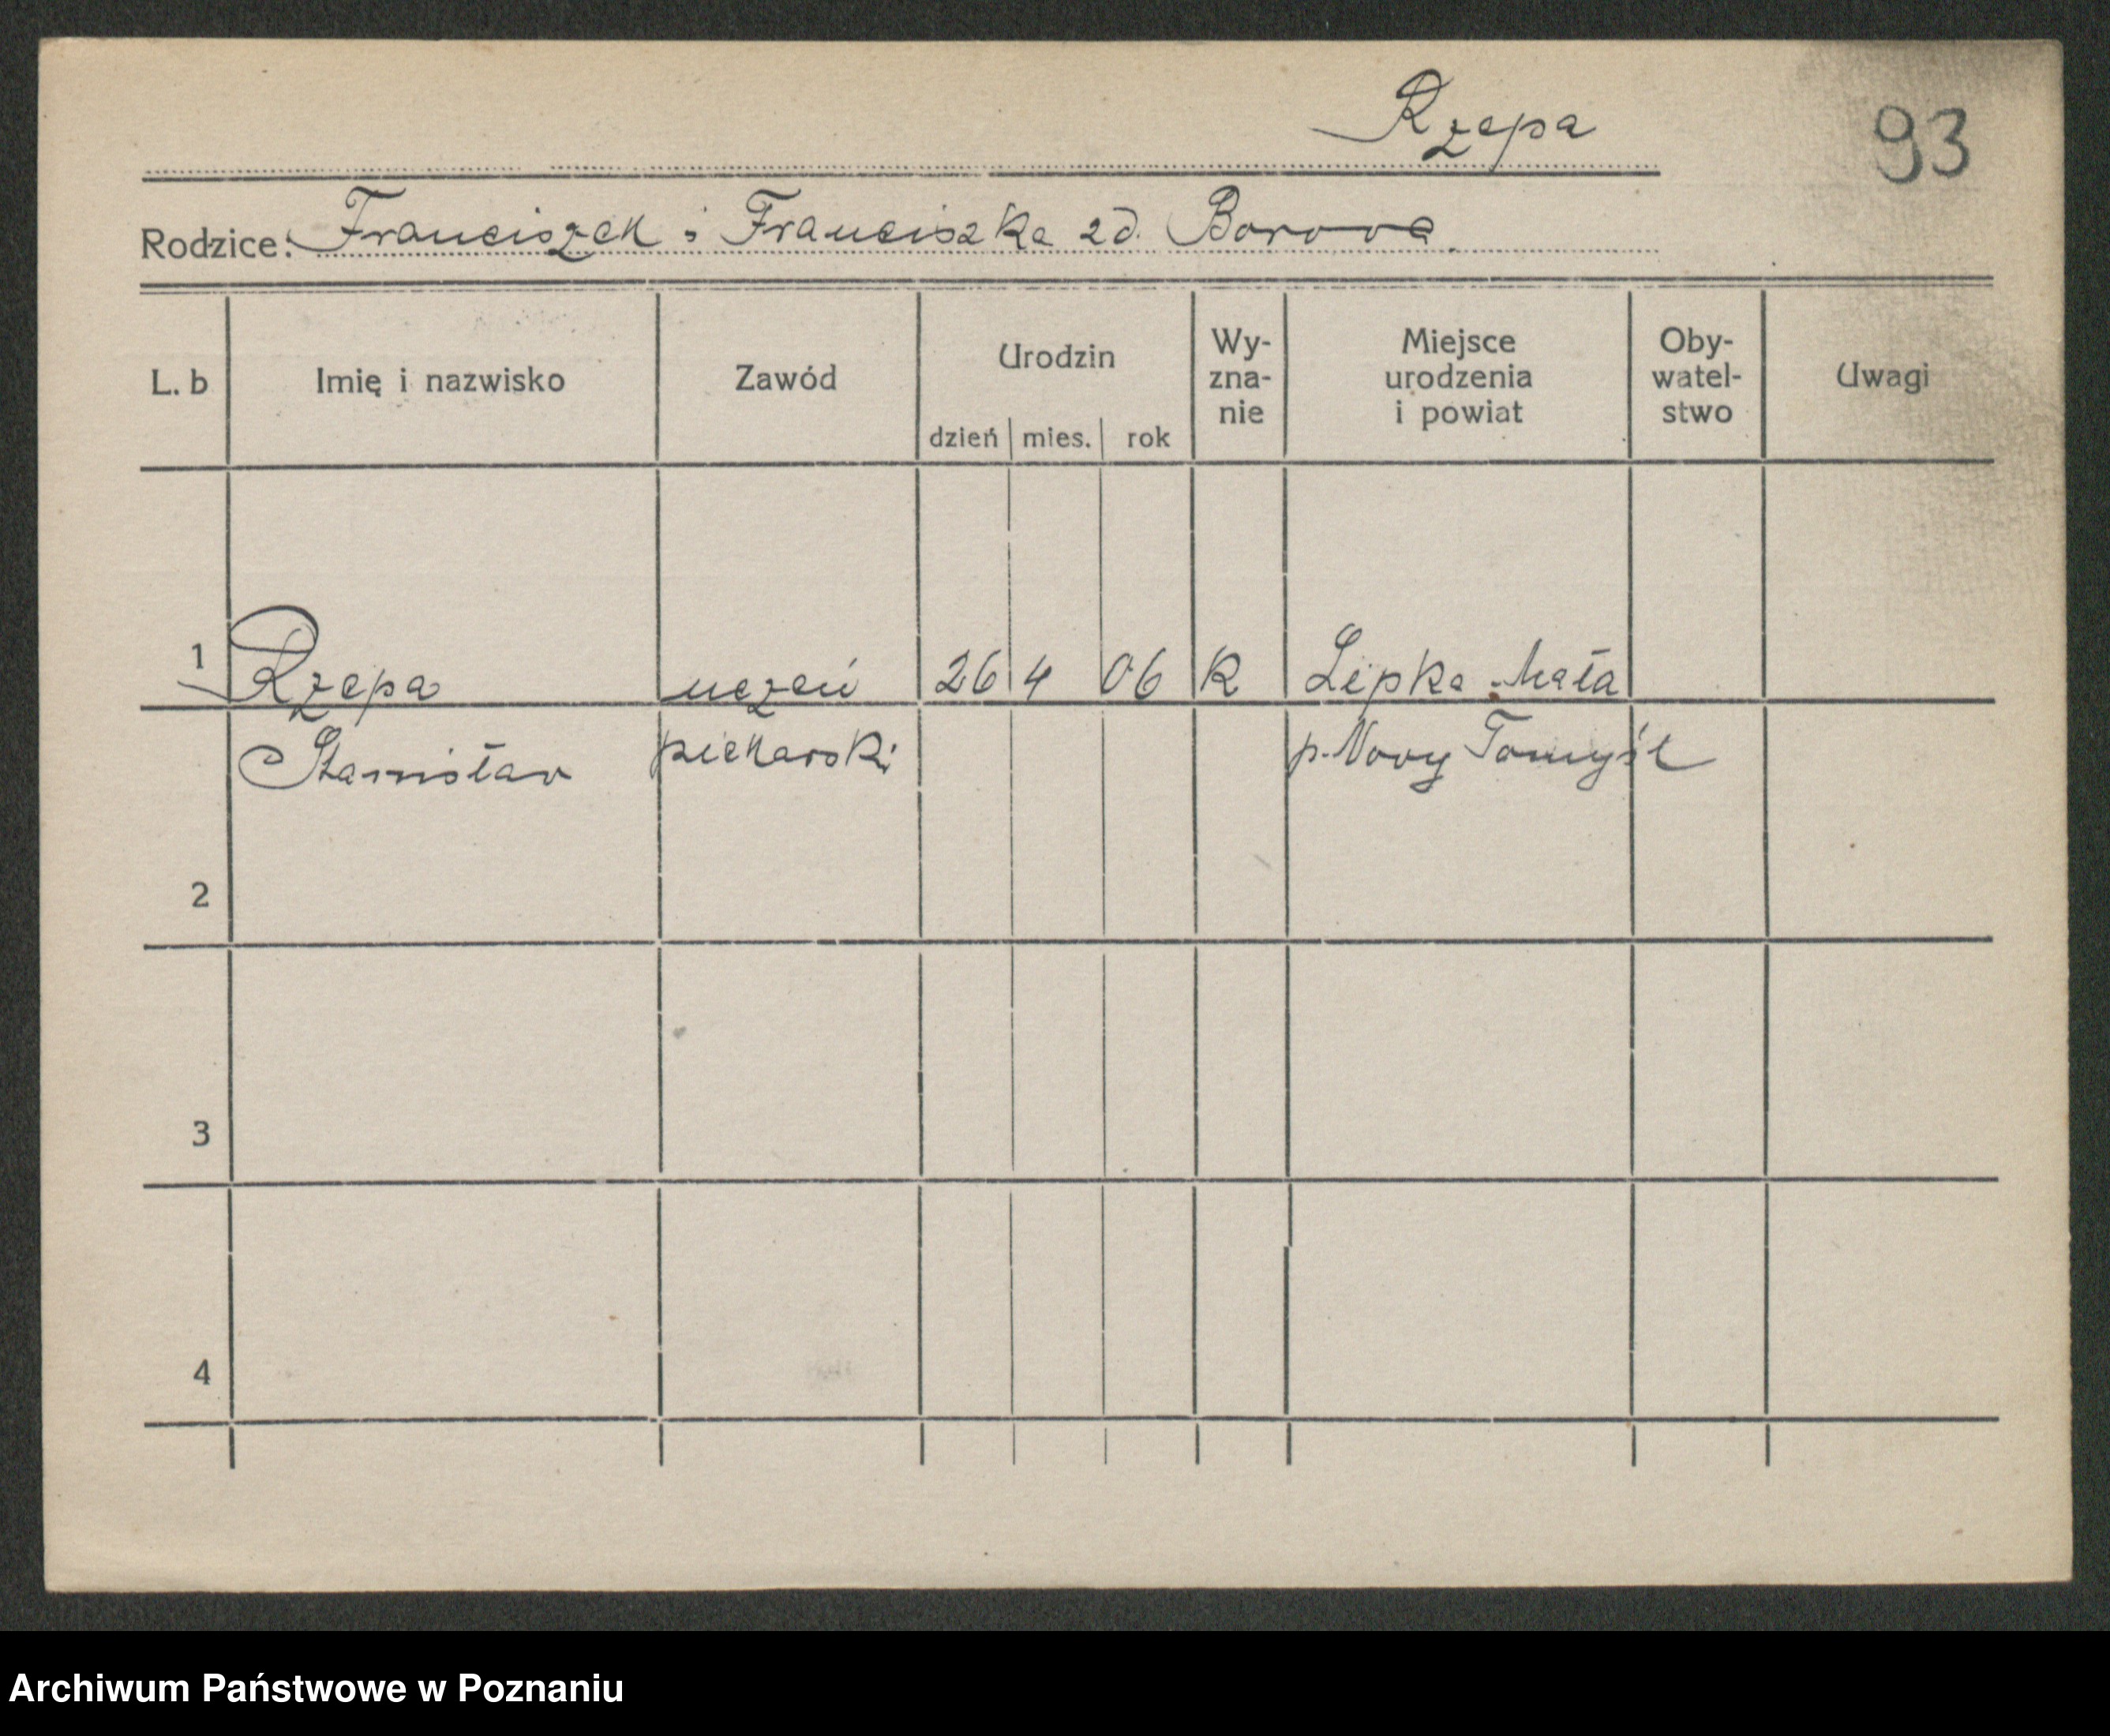 Rzepa
93
Rodzice: Franciszek i Franciszka zd.
L. b
Imię i nazwisko
Zawód
Urodzin
dzień mies. rok
Wy-
zna-
nie
Miejsce
urodzenia
i powiat
Oby-
watel-
stwo
Uwagi
1 Rzepa uczeń 26 4 06 K Lipka Mała
Stanisław piekarski p. Nowy Tomyśl
2
3
4
Archiwum Państwowe w Poznaniu